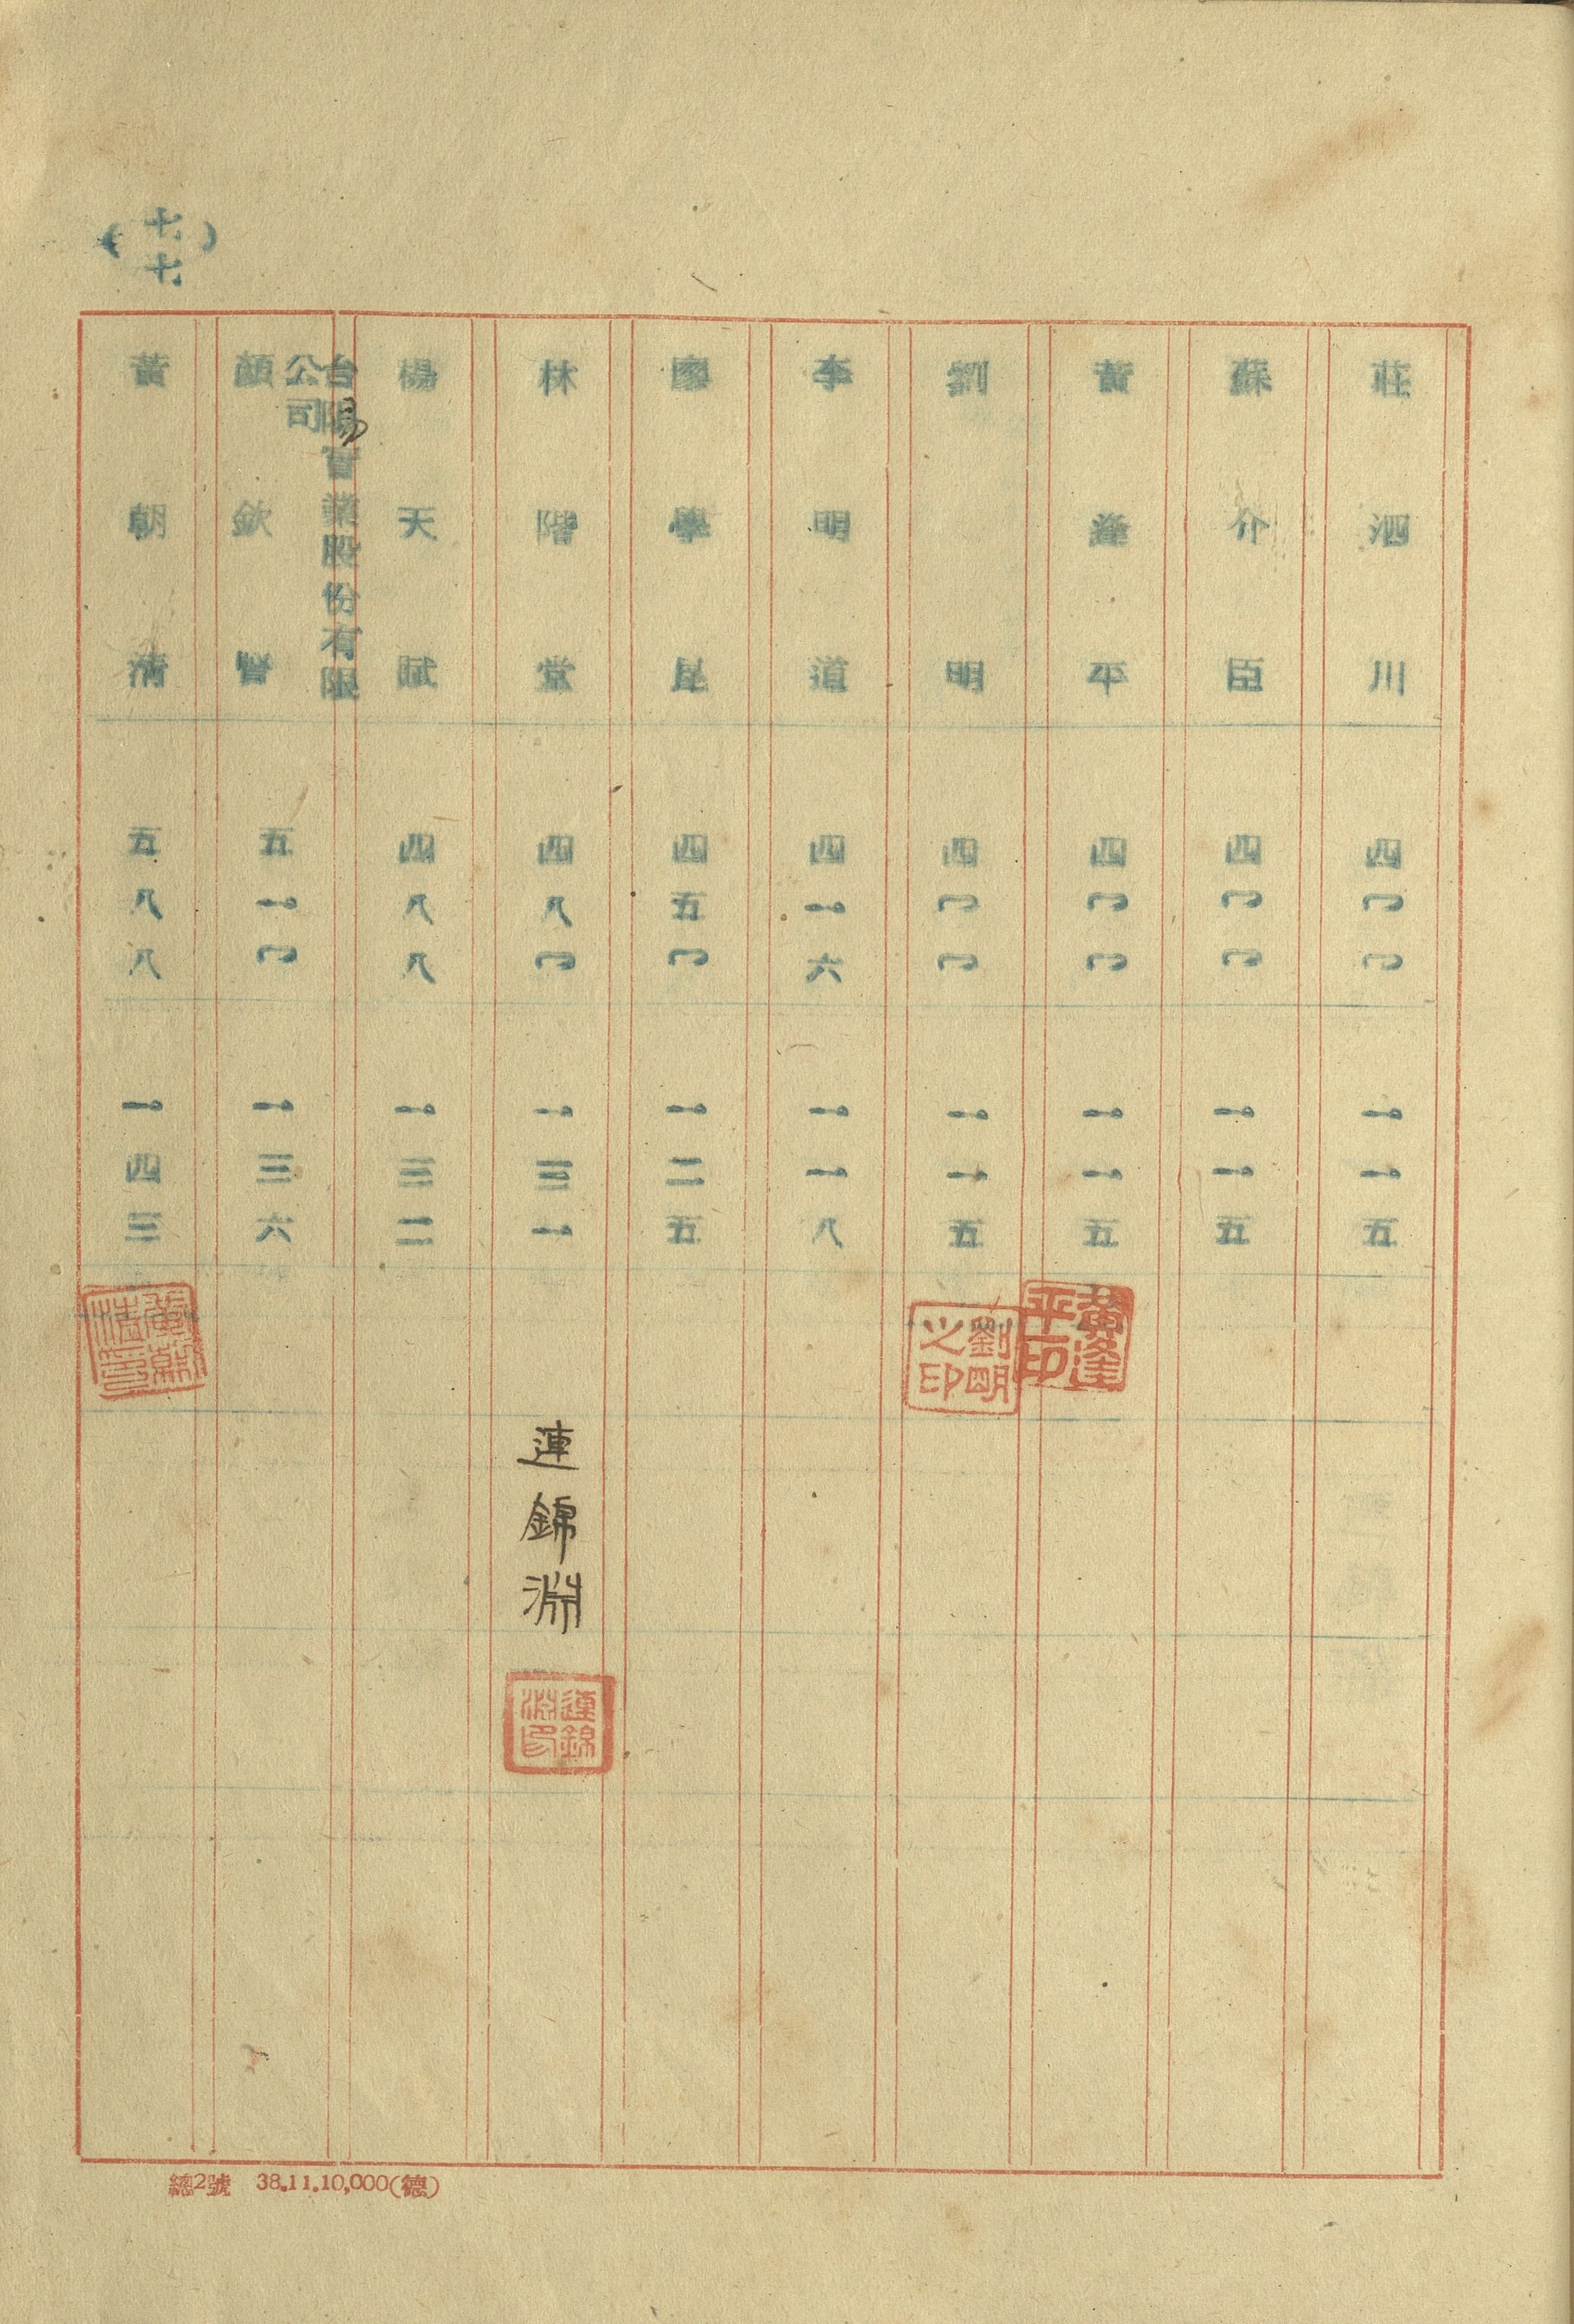 (七七)
莊泗川 四〇〇 一一五
蘇介臣 四〇〇 一一五
黃逢平 四〇〇 一一五
黃逢平印
劉明 四〇〇 一一五
劉明之印
李明道 四一六 一一八
廖學昆 四五〇 一二五
林階堂 四八〇 一三一
連錦淵
連錦淵印
楊天賦 四八八 一三二
台陽實業股份有限
公司
顏欽賢 五一〇 一三六
黃朝清 五八八 一四三
黃朝清印
總2號 38.11.10,000(德)